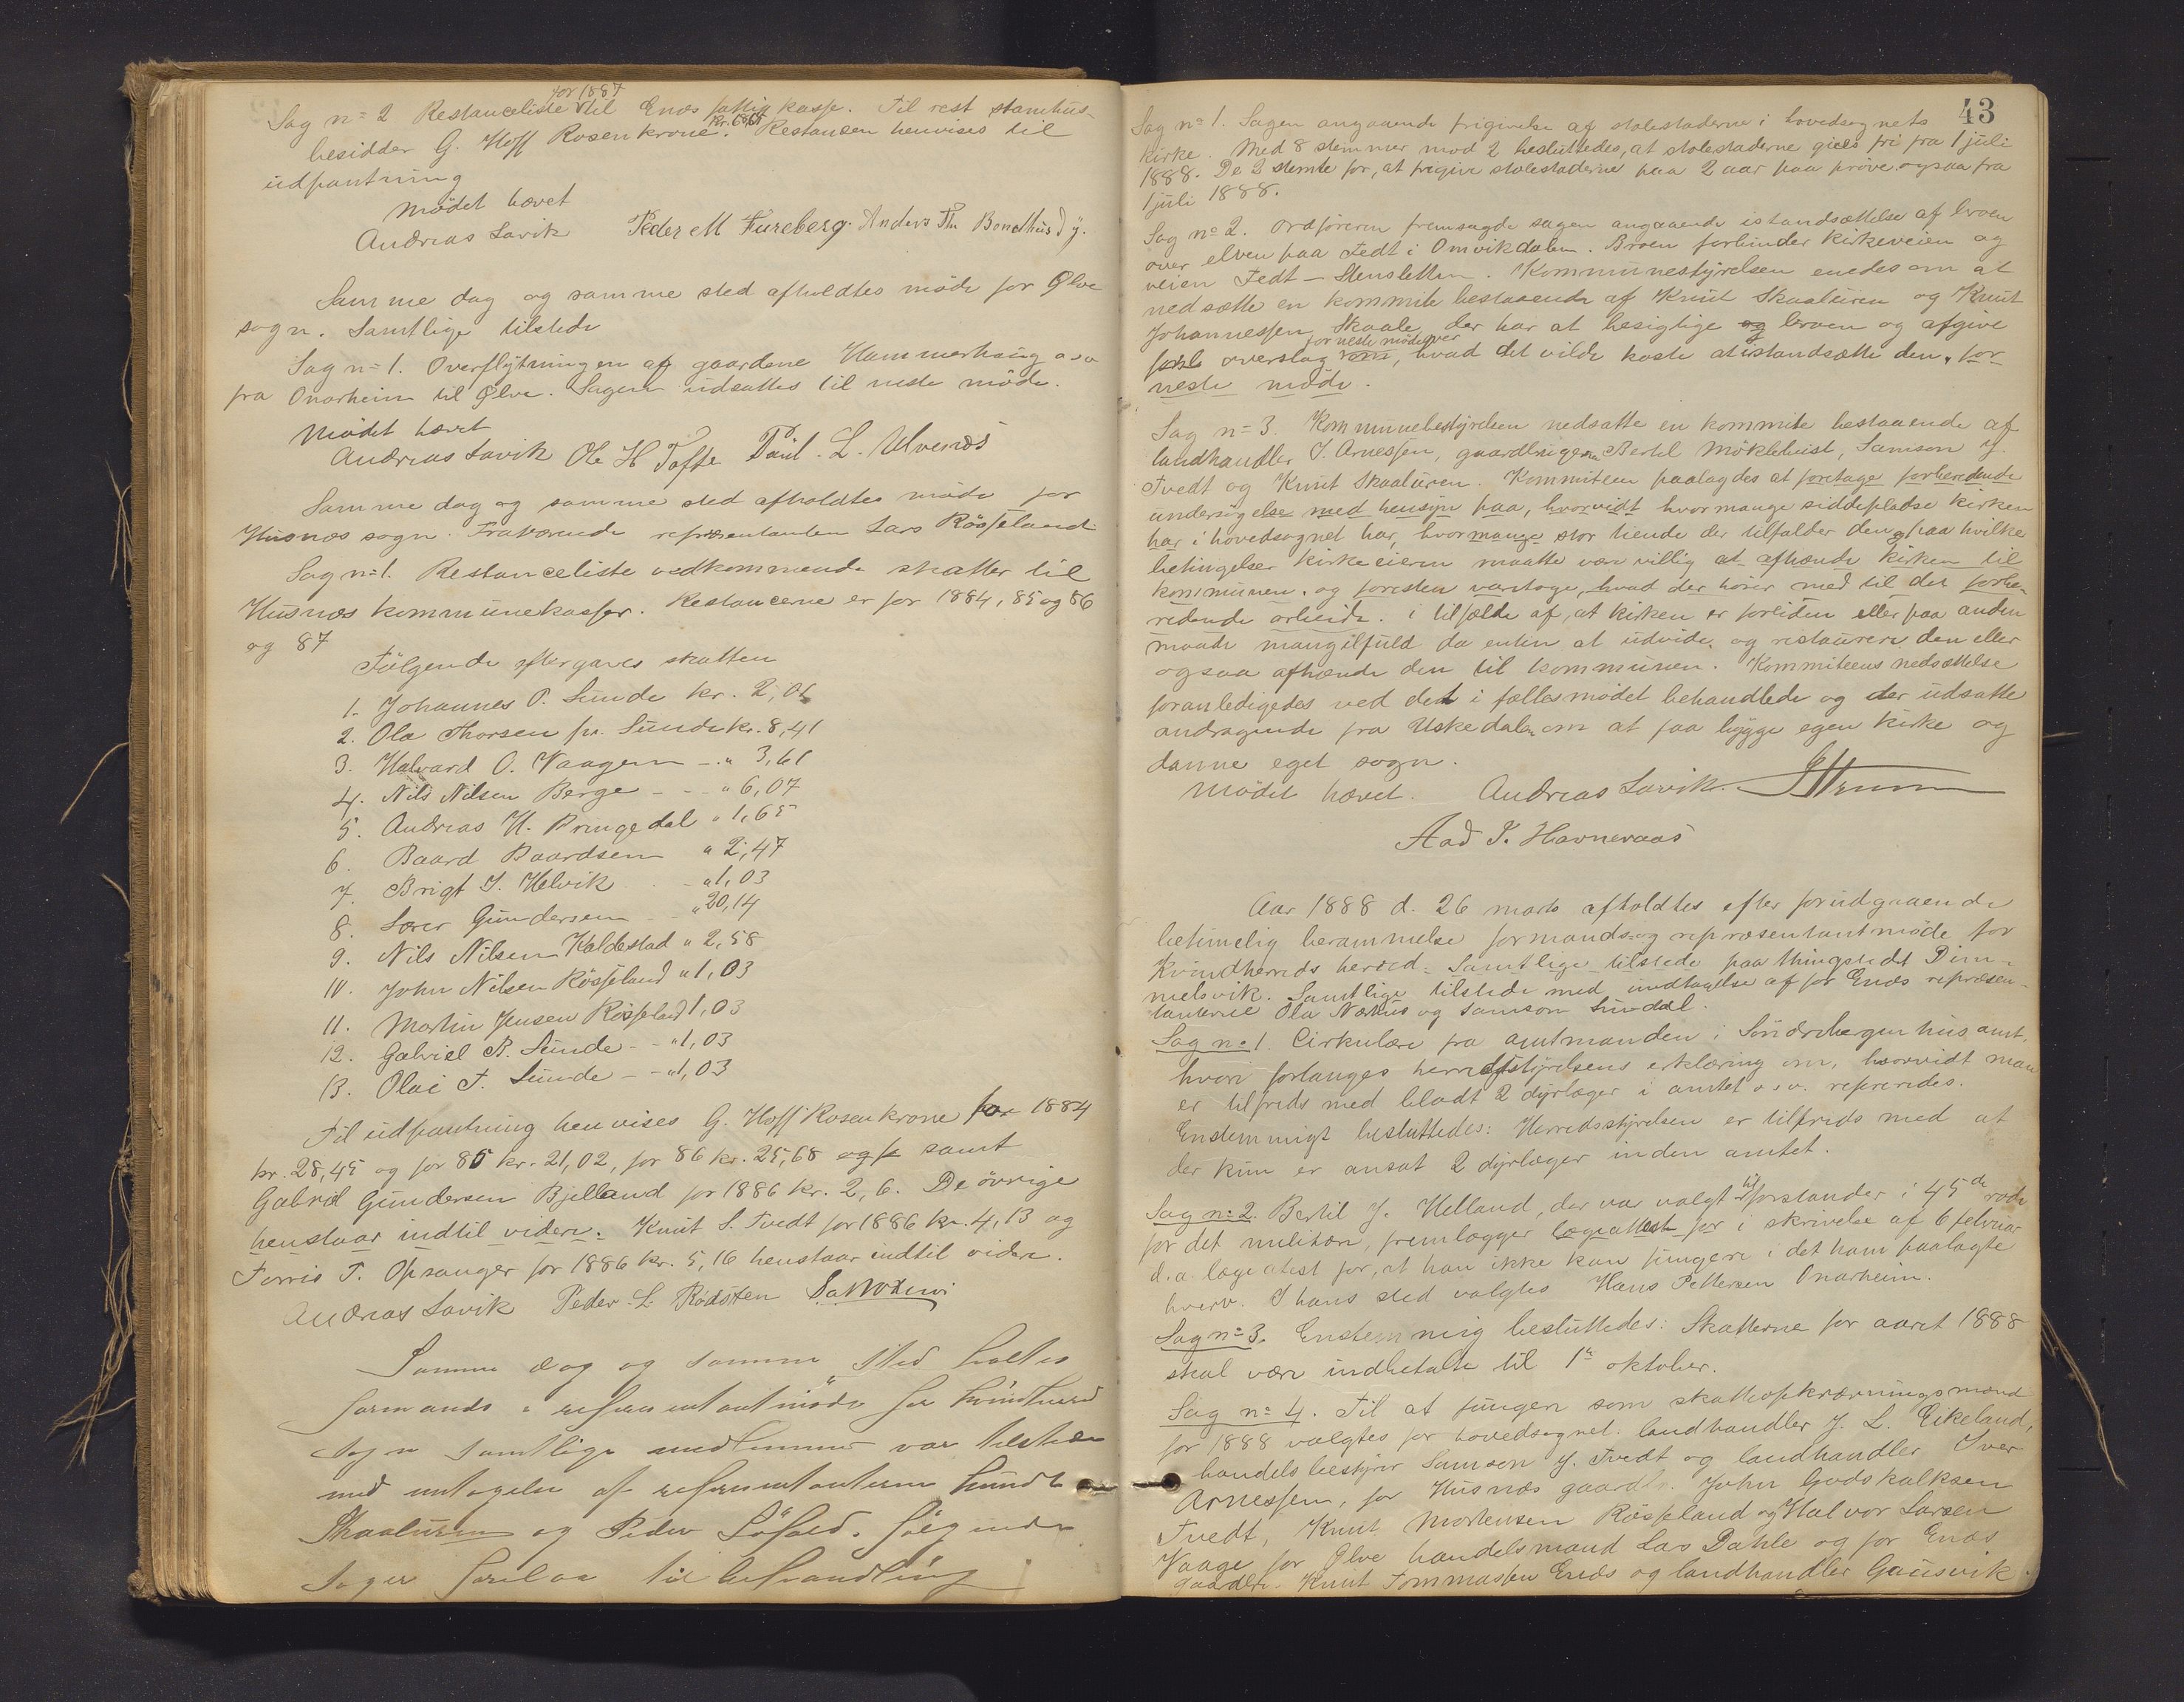 for 1887
Sag n= 2 Restanceliste til Enæs fattigkasse. Til rest stamhus-
besidder G. Hoff Rosenkrone. Restancen henvises til
udpantning
Mödet hævet
Andreas Lavik Peder M Fureberg. Anders Th Bondhus d y.
Samme dag og samme sted afholdtes möde for Ølve
sogn. Samtlige tilstede
Sag n= 1. Overflÿtningen af gaardene Hammerhaug o s v
fra Onarheim til Ølve. Sagen udsattes til neste möde.
Mödet hævet
Andreas Lavik Ole H Tofte Paul. L. Ulvenæs
Samme dag og samme sted afholdtes möde for
Husnæs sogn. Fraværende repræsentanten Lars Rösseland
Sag n= 1. Restanceliste vedkommende skatter til
Husnæs kommunekasser. Restancerne er for 1884, 85 og 86
og 87
Fölgende eftergaves skatten
1. Johannes O. Sunde kr. 2,06
2. Ola Thorsen pr. Sunde kr. 8,41
3. Halvard O. Vaagen - " 3,61
4. Nils Nilsen Berge - - " 6,07
5. Andreas H. Bringedal " 1,65
6. Baard Baardsen " 2,47
7. Brigt J. Helvik - " 1,03
8. Lars Gundersen - " 20,14
9. Nils Nilsen Kaldestad " 2,58
10. John Nilsen Rösseland " 1,03
11. Martin Jensen Rösseland 1,03
12. Gabriel B. Sunde - - " 1,03
13. Olai T. Sunde - - " 1,03
Til udpantning henvises G. Hoff Rosenkrone for 1884
kr. 28,45 og for 85 kr. 21,02, for 86 kr. 25,68 og f samt
Gabriel Gundersen Bjelland for 1886 kr. 2,6. De övrige
henstaar indtil videre. Knut S. Tvedt for 1886 kr. 4,13 og
Torris T. Opsanger for 1886 kr. 5,16 henstaar indtil videre.
Andreas Lavik Peder L. Rödsten
Samme dag og samme sted holtes
formands & representantmöde for Kvindherred
Sogn samtlige medlemmer var tilstede
med untagelse af representanterne Knudt
Skaaluren og Peder Löfald. Fölgende
sager forelaa til behandling
43
Sag n= 1. Sagen angaaende frigivelse af stolestaderne i hovedsognets
kirke. Med 8 stemmer mod 2 besluttedes, at stolestaderne gives fri fra 1 juli
1888. De 2 stemte for, at frigive stolestaderne paa 2 aar paa pröve ogsaa fra
1 juli 1888.
Sag n= 2. Ordföreren fremsagde sagen angaaende istandsættelse af broen
over elven paa Fedt i Omvikdalen. Broen forbinder kirkeveien og
veien Fedt - Stensletten. Kommunestyrelsen enedes om at
nedsætte en kommite bestaaende af Knut Skaaluren og Knut
Johannessen Skaale, der har at besigtige og broen og afgive
for neste möde over
overslag om, hvad det vilde koste at istandsætte den, for
neste möde.
Sag n= 3. Kommunebestyrelsen nedsatte en kommite bestaaende af
landhandler I. Arnessen, gaardbrugerne Bertel Möklebust, Samson J.
Tvedt og Knut Skaaluren. Kommiteen paalagdes at foretage forberedende
undersøgelse med hensyn paa, hvorvidt hvormange siddepladse kirken
har i hovedsognet har, hvormange stor tiende der tilfalder den og paa hvilke
betingelser kirkeeieren maatte være villig at afhænde kirken til
kommunen, og foresten varetage, hvad der hörer med til det forbe-
redende arbeide. i tilfælde af, at kirken er forliden eller paa anden
maade mangelfuld da enten at udvide og restaurere den eller
ogsaa afhænde den til kommunen. Kommiteens nedsættelse
foranledigedes ved det i fællesmödet behandlede og der udsatte
andragende fra Uskedalen om at faa bygge egen kirke og
danne eget sogn.
Mödet hævet. Andreas Lavik.
Aad J. Havneraas
Aar 1888 d. 26 marts afholdtes efter forudgaaende
betimelig berammelse formands- og repræsentantmöde for
Kvindherreds herred. Samtlige tilstede paa thingstedet Dim-
melsvik. Samtlige tilstede med undtagelse af for Enæs repræsen-
tanterne Ola Nærhus og Samson Sundal.
Sag n= 1. Cirkulære fra amtmanden i Söndrebergenhus amt,
hvori forlanges herredsstyrelsens erklæring om, hvorvidt man
er tilfreds med blodt 2 dyrlæger i amtet o. s. v. refereredes.
Enstemmigt besluttedes: Herredsstyrelsen er tilfreds med at
der kun er ansat 2 dyrlæger inden amtet.
Sag n= 2. Bertil J. Helland, der var valgt til forstander i 45de rode
for det militære, fremlægger lægeattest for i skrivelse af 6 februar
d. a. lægeatest for, at han ikke kan fungere i det ham paalagte
hverv. I hans sted valgtes Hans Pettersen Onarheim.
Sag n= 3. Enstemmig besluttedes: Skatterne for aaret 1888
skal være indbetalte til 1ste oktober.
Sag n= 4. Til at fungere som skatteopkrævningsmænd
for 1888 valgtes for hovedsognet landhandler J. L. Eikeland,
handelsbestyrer Samson J. Tvedt og landhandler Iver
Arnessen, for Husnæs gaardbr. John Godskalksen
Tvedt, Knut Mortensen Rösseland og Halvor Larsen
Vaage for Ølve handelsmand Lars Dahle og for Enæs
gaardbr. Knut Tommassen Enæs og landhandler Gausvik.